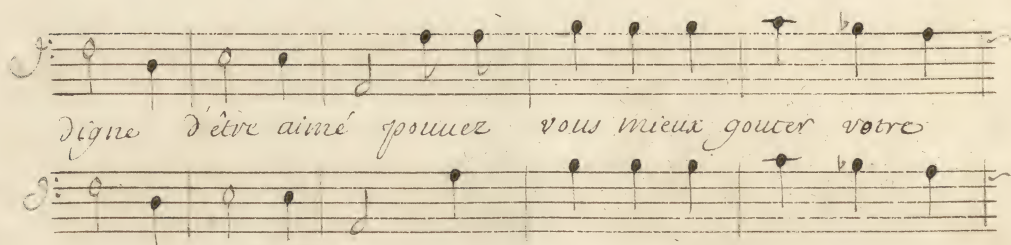 digne d'être aimé pouuez vous mieux gouter votre